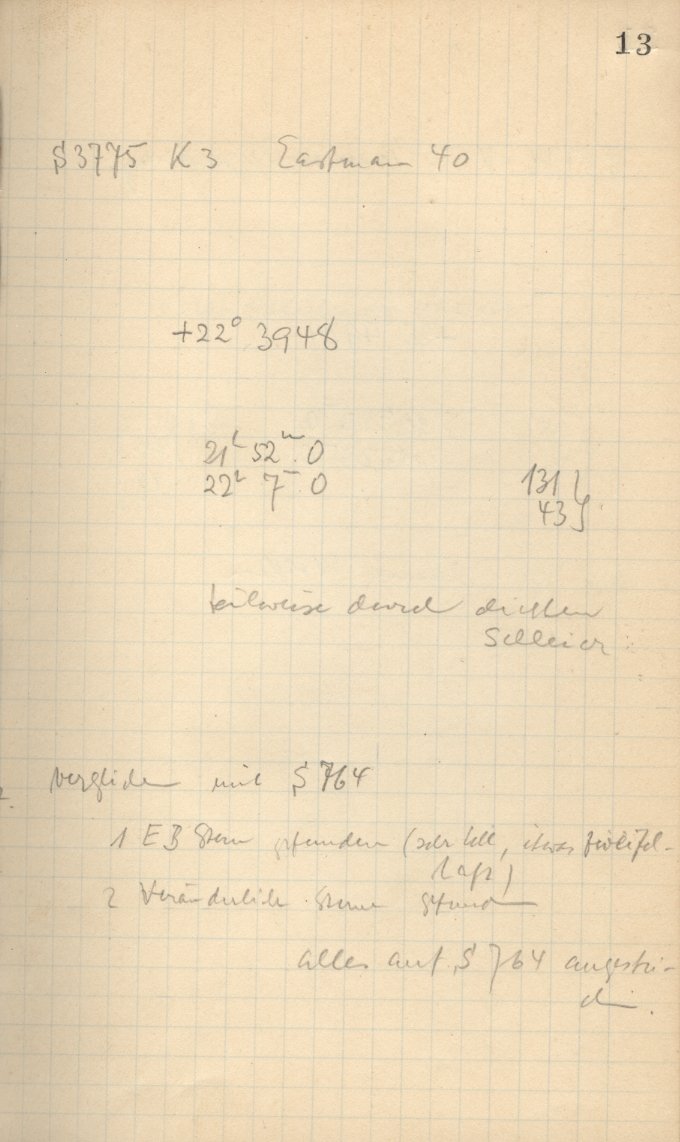 13
S 3775 K 3 Eastman 40
+22° 3948
21h 52m 0
22h 7m 0 131 }
43 }
teilweise durch dichten
Schleier
verglichen mit S 764
1 EB Stern gefunden (sehr hell, etwas zweifel-
haft)
2 Veränderliche Sterne gefunden
alles auf S 764 angestri-
chen.